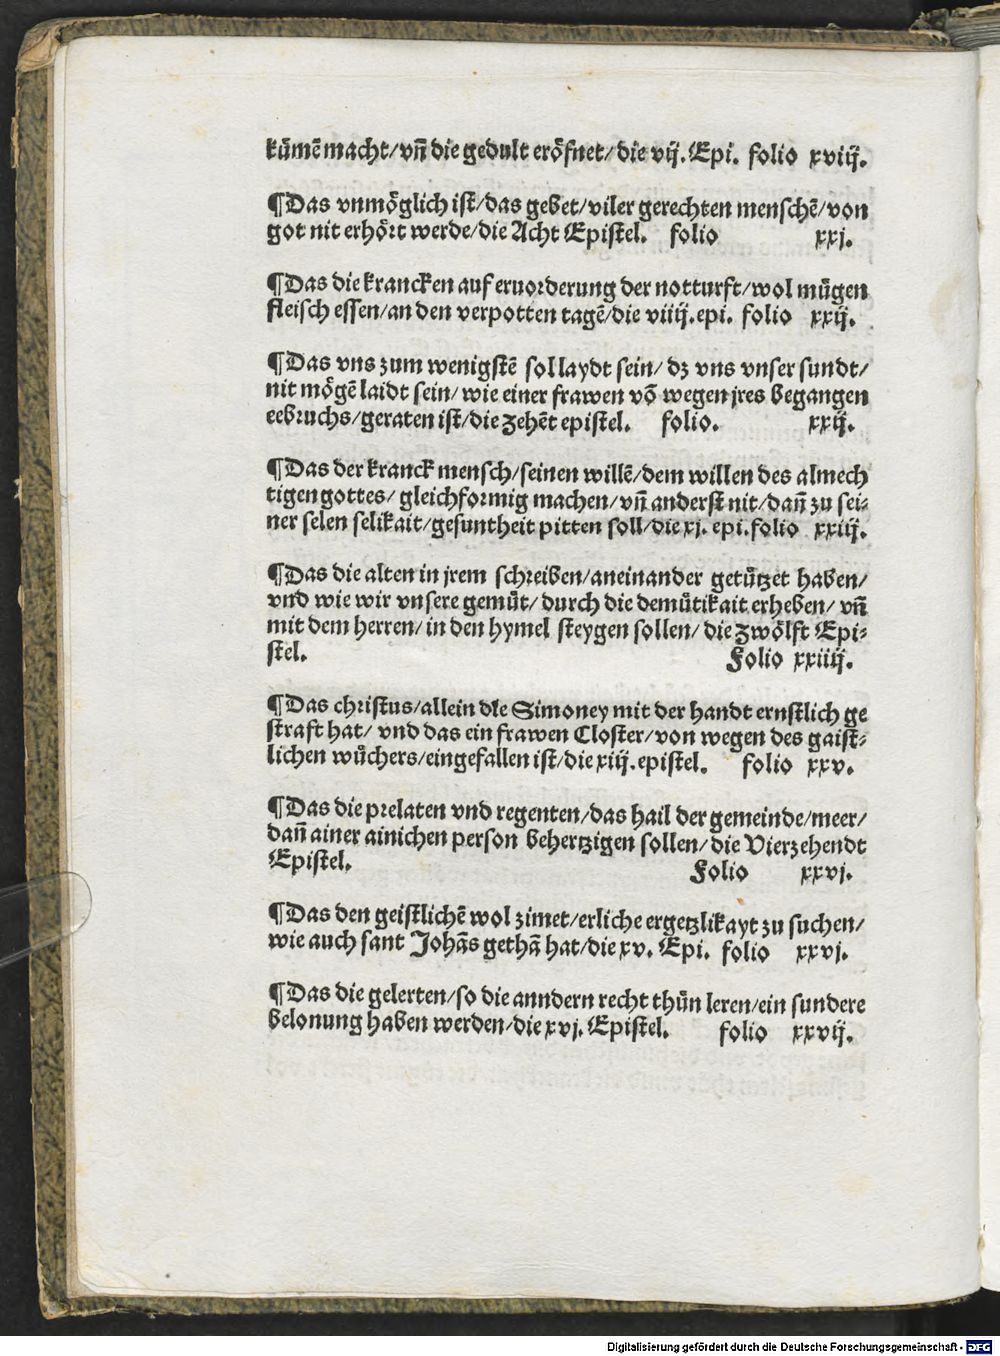 kümẽ macht/vñ die gedult eröfnet/die vij. Epi. folio xviij.
¶Das vnmöglich ist/das gebet/viler gerechten menschẽ/von
got nit erhört werde/die Acht Epistel. folio xxj.
¶Das die krancken auf eruorderung der notturft/wol mügen
fleisch essen/an den verpotten tagẽ/die viiij.epi. folio xxij.
¶Das vns zum wenigstẽ sol laydt sein/dz vns vnser sundt/
nit mögẽ laidt sein/wie einer frawen võ wegen jres begangen
eebruchs/geraten ist/die zehẽt epistel. folio. xxij.
¶Das der kranck mensch/seinen willẽ/dem willen des almech
tigen gottes/gleichformig machen/vñ anderst nit/dañ zu sei-
ner selen selikait/gesuntheit pitten soll/die xj. epi.folio xxiij.
¶Das die alten in jrem schreiben/aneinander getützet haben/
vnd wie wir vnsere gemüt/durch die demütikait erheben/vñ
mit dem herren/in den hymel steygen sollen/die zwölft Epi-
stel. Folio xxiiij.
¶Das christus/allein dle Simoney mit der handt ernstlich ge
straft hat/vnd das ein frawen Closter/von wegen des gaist-
lichen wůchers/eingefallen ist/die xiij. epistel. folio xxv.
¶Das die prelaten vnd regenten/das hail der gemeinde/meer/
dañ ainer ainichen person behertzigen sollen/die Vierzehendt
Epistel. Folio xxvj.
¶Das den geistlichẽ wol zimet/erliche ergetzlikayt zu suchen/
wie auch sant Johãs gethã hat/die xv. Epi. folio xxvj.
¶Das die gelerten/so die anndern recht thün leren/ein sundere
belonung haben werden/die xvj. Epistel. folio xxvij.
Digitalisierung gefördert durch die Deutsche Forschungsgemeinschaft - DFG